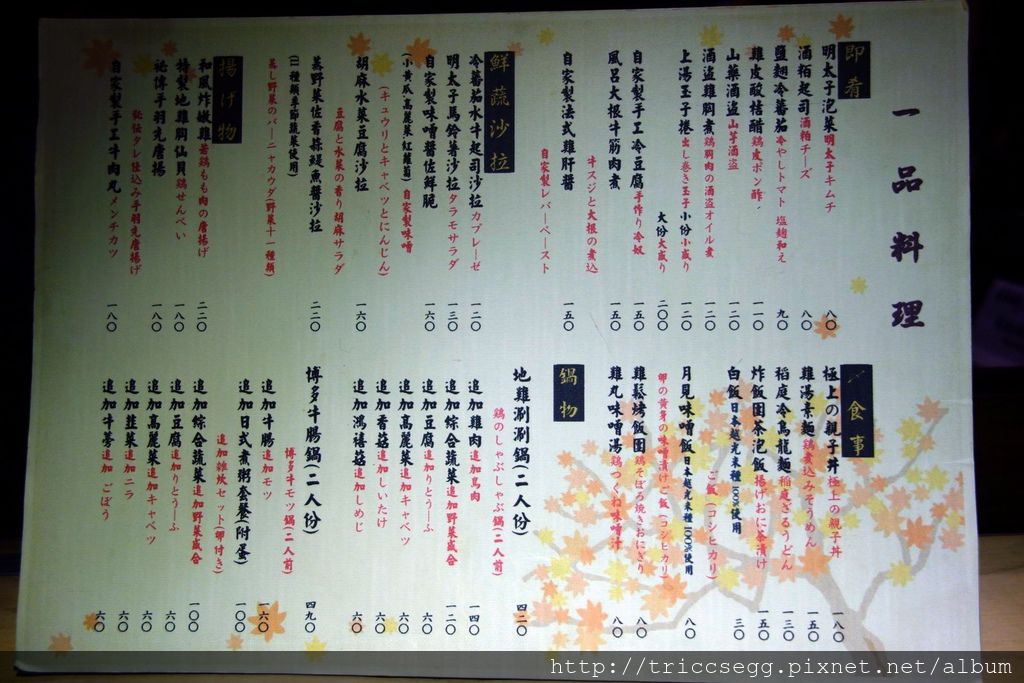 一品料理
即肴
明太子泡菜 明太子キムチ 八〇
酒粕起司 酒粕チーズ 八〇
鹽麹冷蕃茄 冷やしトマト 塩麹和え 九〇
雞皮酸桔醋 鶏皮ポン酢 一一〇
山藥酒盜 山芋酒盗 一二〇
酒盜雞胸煮 鶏胸肉の酒盗オイル煮 一二〇
上湯玉子捲 出し巻き玉子 小份 小盛り 一二〇
大份 大盛り 二〇〇
自家製手工冷豆腐 手作り冷奴 一五〇
風呂大根牛筋肉煮 一五〇
牛スジと大根の煮込
自家製法式雞肝醬 一五〇
自家製レバーペースト
鮮蔬沙拉
冷蕃茄水牛起司沙拉 カプレーゼ 一二〇
明太子馬鈴薯沙拉 タラモサラダ 一三〇
自家製味噌醬佐鮮脆 一六〇
(小黃瓜/高麗菜/紅蘿蔔) 自家製味噌
(キュウリとキャベツとにんじん)
胡麻水菜豆腐沙拉 一六〇
豆腐と水菜の香り胡麻サラダ
蒸野菜佐香蒜鯷魚醬沙拉 二二〇
(11種類季節蔬菜使用)
蒸し野菜のバーニャカウダ(野菜十一種類)
揚げ物
和風炸嫩雞 若鶏もも肉の唐揚げ 二二〇
特製地雞胸仙貝 鶏せんべい 一八〇
祕傳手羽先唐揚 一八〇
秘伝タレ仕込み手羽先唐揚げ
自家製手工牛肉丸 メンチカツ 一八〇
食事
極上の親子丼 極上の親子丼 一八〇
雞湯素麵 鶏煮込みそうめん 一五〇
稻庭冷烏龍麵 稲庭ざるうどん 一三〇
炸飯團茶泡飯 揚げおに茶漬け 一五〇
白飯 日本越光米種100%使用 三〇
ご飯(コシヒカリ)
月見味噌飯 日本越光米種100%使用 八〇
卵の黄身の味噌漬けご飯(コシヒカリ)
雞鬆烤飯團 鶏そぼろ焼きおにぎり 八〇
雞丸味噌湯 鶏つくね味噌汁 八〇
鍋物
地雞涮涮鍋(二人份) 四二〇
鶏のしゃぶしゃぶ鍋(二人前)
追加雞肉 追加鳥肉 一四〇
追加綜合蔬菜 追加野菜盛合 一二〇
追加豆腐 追加りとうーふ 六〇
追加高麗菜 追加キャベツ 六〇
追加香菇 追加しいたけ 六〇
追加鴻禧菇 追加しめじ 六〇
博多牛腸鍋(二人份) 四九〇
博多牛モツ鍋(二人前)
追加牛腸 追加モツ 一六〇
追加日式煮粥套餐(附蛋) 一〇〇
追加雑炊セット(卵付き)
追加綜合蔬菜 追加野菜盛合 一〇〇
追加豆腐 追加りとうーふ 六〇
追加高麗菜 追加キャベツ 六〇
追加韮菜 追加ニラ 六〇
追加牛蒡 追加ごぼう 六〇
http://triccsegg.pixnet.net/album